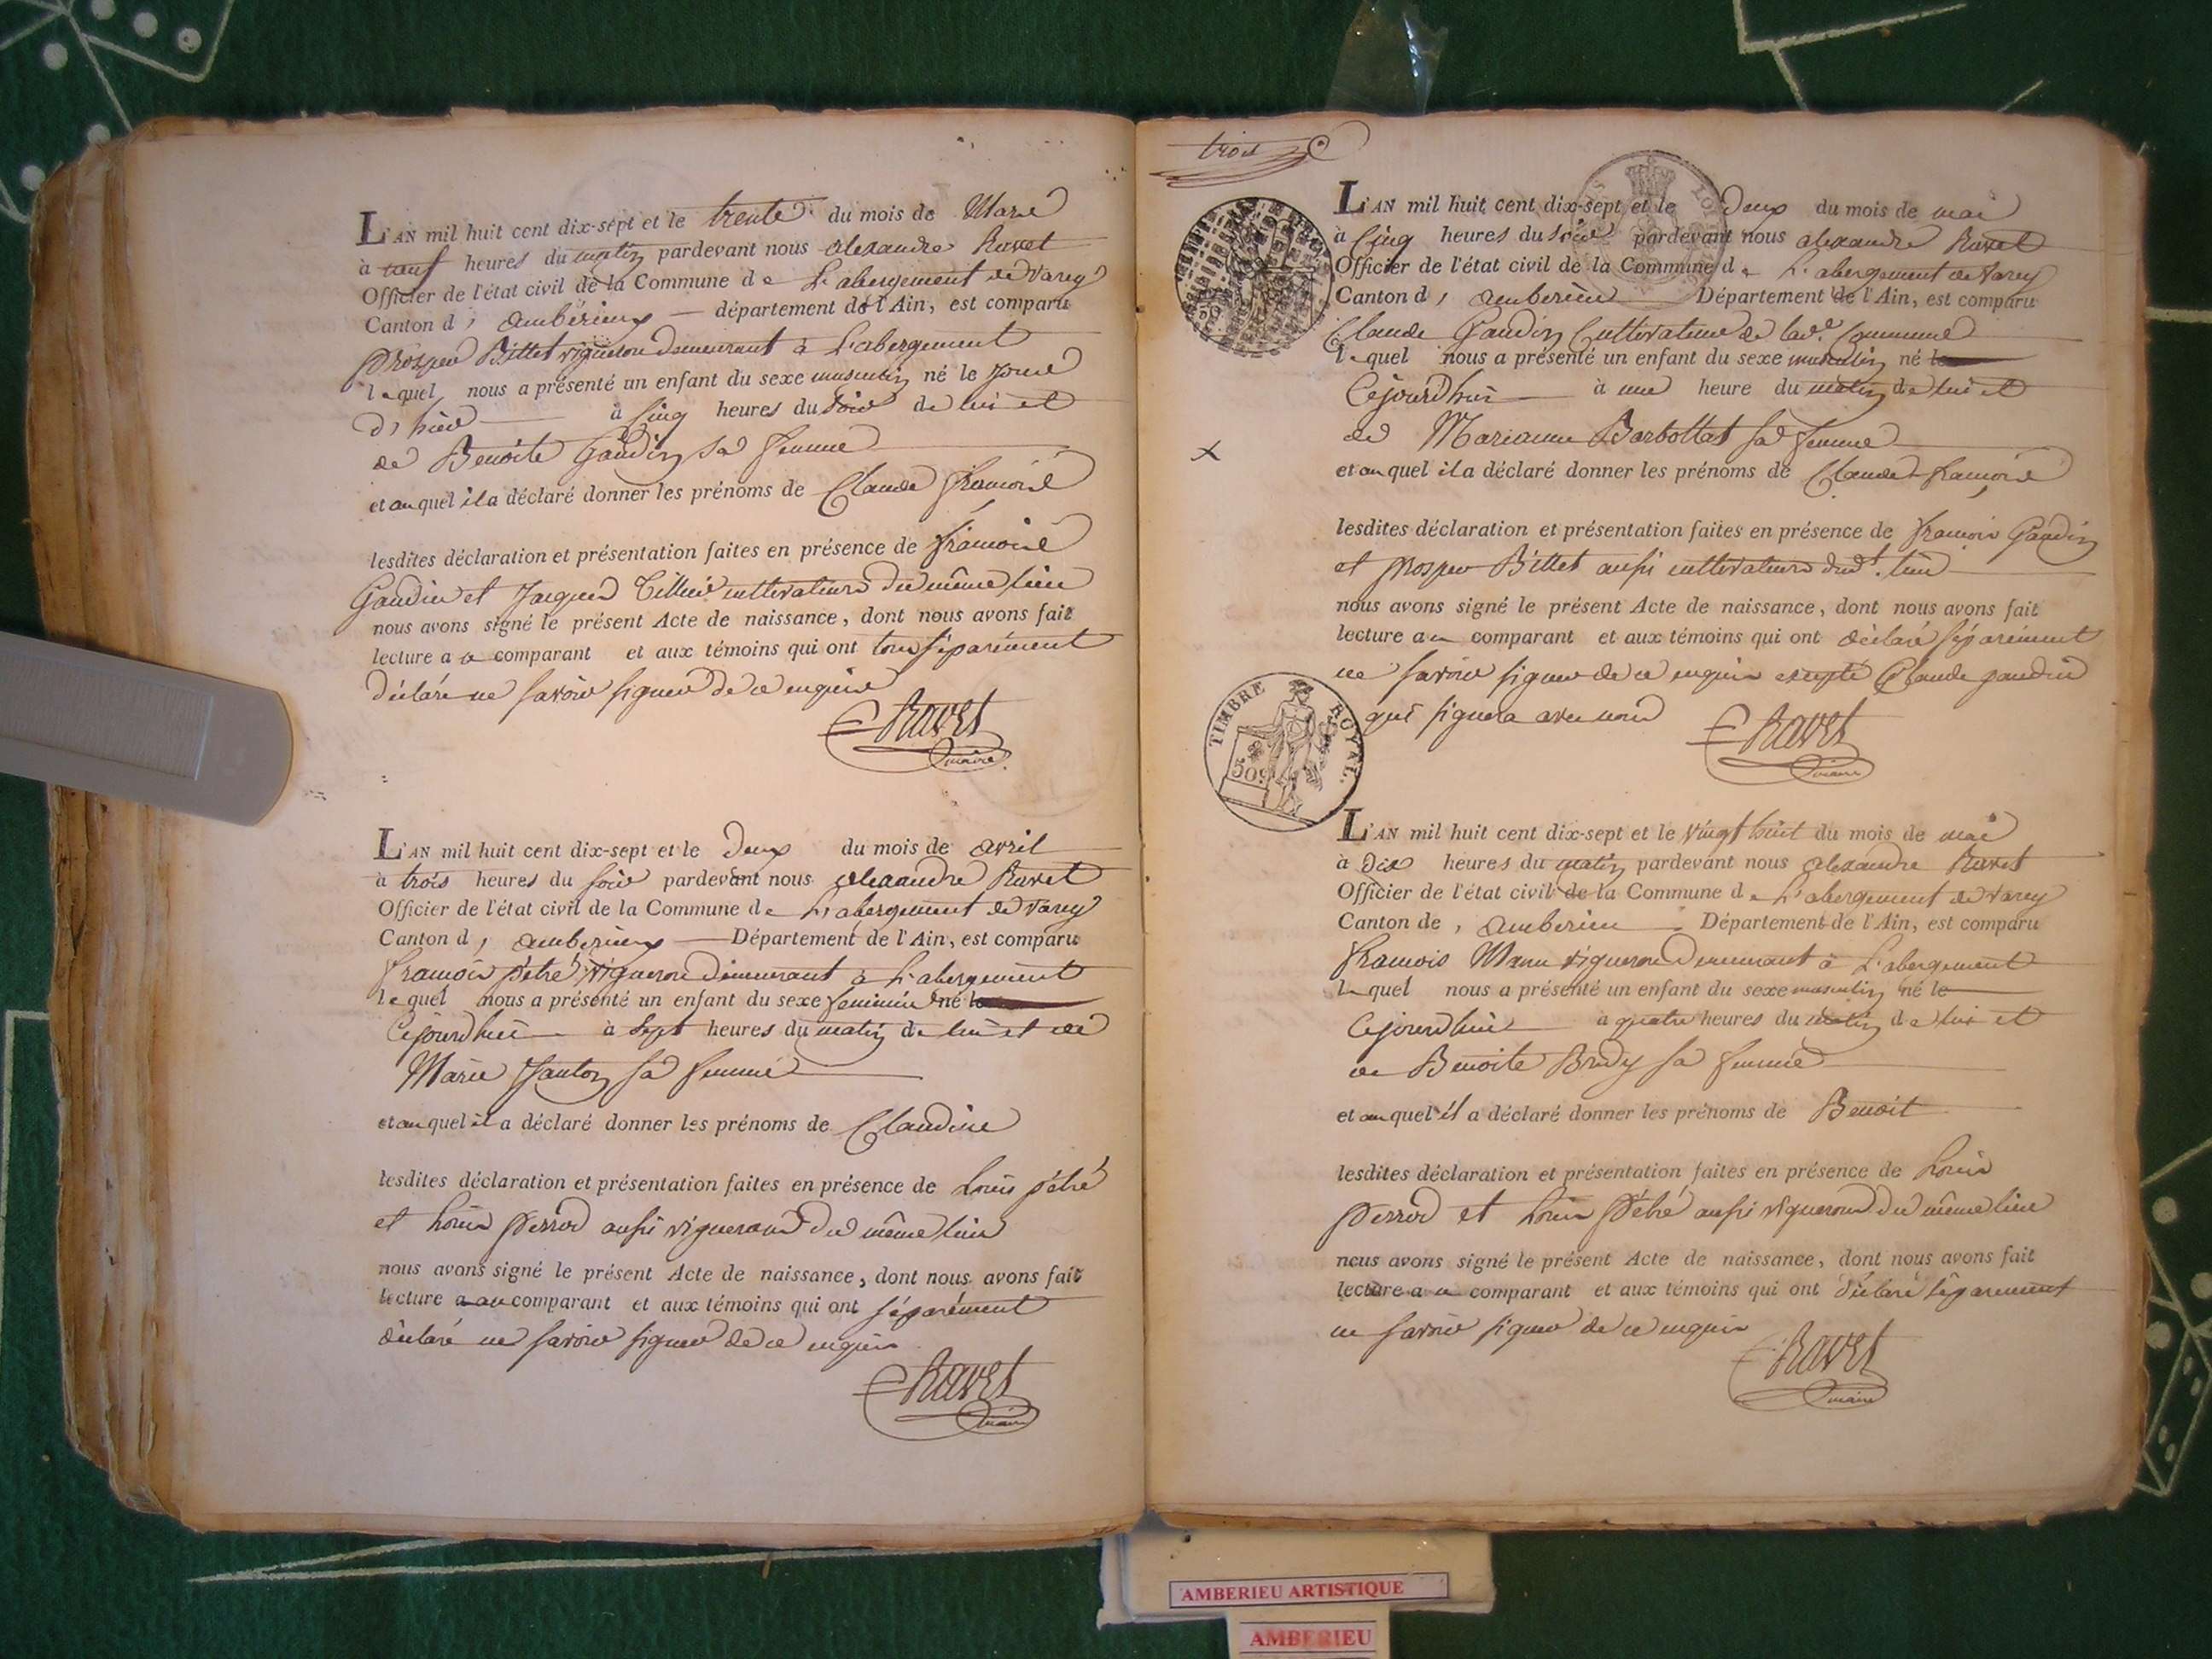 L'AN mil huit cent dix-sept et le trente du mois de Mars
à neuf heures du matin pardevant nous alexandre Ravet
Officier de l'état civil de la Commune de L'abergement de Varey
Canton d, ambérieux département de l'Ain, est comparu
Prosper Billet vigneron demeurant à L'abergement
lequel nous a présenté un enfant du sexe masculin né le jour
d'hier à cinq heures du soir de lui et
de Benoite Gaudin sa femme
et auquel il a déclaré donner les prénoms de Claude François
lesdites déclaration et présentation faites en présence de François
Gaudin et Jacques cultivateurs du même lieu
nous avons signé le présent Acte de naissance, dont nous avons fait
lecture au comparant et aux témoins qui ont tous séparément
déclaré ne savoir signer de ce enquis
Ravet
maire
L'AN mil huit cent dix-sept et le deux du mois de avril
à trois heures du soir pardevant nous alexandre Ravet
Officier de l'état civil de la Commune de L'abergement de Varey
Canton d, ambérieux Département de l'Ain, est comparu
François Pétré vigneron demeurant à L'abergement
lequel nous a présenté un enfant du sexe feminin né le
Cejourd'hui à Sept heures du matin de lui et de
Marie Janton sa femme
et auquel il a déclaré donner les prénoms de Claudine
lesdites déclaration et présentation faites en présence de Louis Pétré
et Louis Perrod aussi vignerons du même lieu
nous avons signé le présent Acte de naissance, dont nous avons fait
lecture a au comparant et aux témoins qui ont séparément
déclaré ne savoir signer de ce enquis
Ravet
maire
trois
L'AN mil huit cent dix-sept et le deux du mois de mai
à Cinq heures du soir pardevant nous alexandre Ravet
Officier de l'état civil de la Commune de L'abergement de Varey
Canton d, amberieu Département de l'Ain, est comparu
Claude Gaudin Cultivateur de lad.e Commune
lequel nous a présenté un enfant du sexe masculin né le
Cejourd'hui à une heure du matin de lui et
de Marianne Barbollat sa femme
et auquel il a déclaré donner les prénoms de Claude françois
lesdites déclaration et présentation faites en présence de françois Gaudin
et Prosper Billet aussi cultivateurs dud.t lieu
nous avons signé le présent Acte de naissance, dont nous avons fait
lecture au comparant et aux témoins qui ont déclaré séparément
ne savoir signer de ce enquis excepté Claude gaudin
qui signera avec nous
TIMBRE ROYAL.
50
Ravet
maire
L'AN mil huit cent dix-sept et le vingt huit du mois de mai
à Dix heures du matin pardevant nous alexandre Ravet
Officier de l'état civil de la Commune de L'abergement de Varey
Canton de, amberieu Département de l'Ain, est comparu
François vigneron demeurant à L'abergement
lequel nous a présenté un enfant du sexe masculin né le
Cejourd'hui a quatre heures du matin de lui et
de Benoite Brudy sa femme
et auquel il a déclaré donner les prénoms de Benoit
lesdites déclaration et présentation faites en présence de Louis
Perrod et Louis Pétré aussi vignerons du même lieu
nous avons signé le présent Acte de naissance, dont nous avons fait
lecture au comparant et aux témoins qui ont déclaré séparément
ne savoir signer de ce enquis
Ravet
maire
AMBERIEU ARTISTIQUE
AMBERIEU